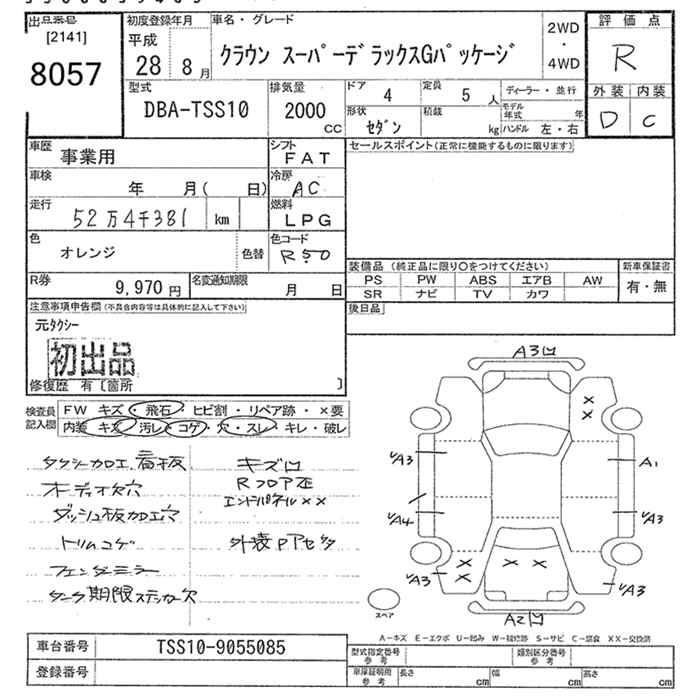 出品番号
[2141]
8057
初度登録年月
平成
28 8月
車名・グレード
クラウン スーパーデラックスGパッケージ
2WD
・
4WD
評価点
R
外装 内装
D C
型式
DBA-TSS10
排気量
2000
CC
ドア
4
定員
5 人
形状
セダン
積載
kg
ディーラー・並行
モデル年式 年
ハンドル 左・右
車歴
事業用
シフト
FAT
セールスポイント(正常に機能するものに限ります)
車検
年 月( 日)
冷房
AC
走行
52万4千381 km
燃料
LPG
色
オレンジ
色替
色コード
R50
R券
9,970円
名変通知期限
月 日
装備品 (純正品に限り○をつけてください)
PS PW ABS エアB AW
SR ナビ TV カワ
新車保証書
有・無
後日品
注意事項申告欄(不具合内容等は具体的に記入して下さい)
元タクシー
初出品
修復歴 有〔箇所 〕
検査員記入欄
FW キズ・飛石・ヒビ割・リペア跡・×要
内装 キズ・汚レ・コゲ・穴・スレ・キレ・破レ
タクシー加工、看板
オーディオ欠穴
ダッシュ板加工穴
トリムコゲ
フェンダーミラー
タンク期限ステッカー欠
キズ凹
Rフロア歪
エンドパネル××
外装Pアセタ
A3凹
×
×
A3
A1
A4
A3
×
×
× ×
A3
A3
A2凹
スペア
A-キズ E-エクボ U-凹み W-補修跡 S-サビ C-腐食 XX-交換済
車台番号
TSS10-9055085
登録番号
型式指定番号
参考
類別区分番号
参考
車庫証明用
参考
長さ cm
幅 cm
高さ cm